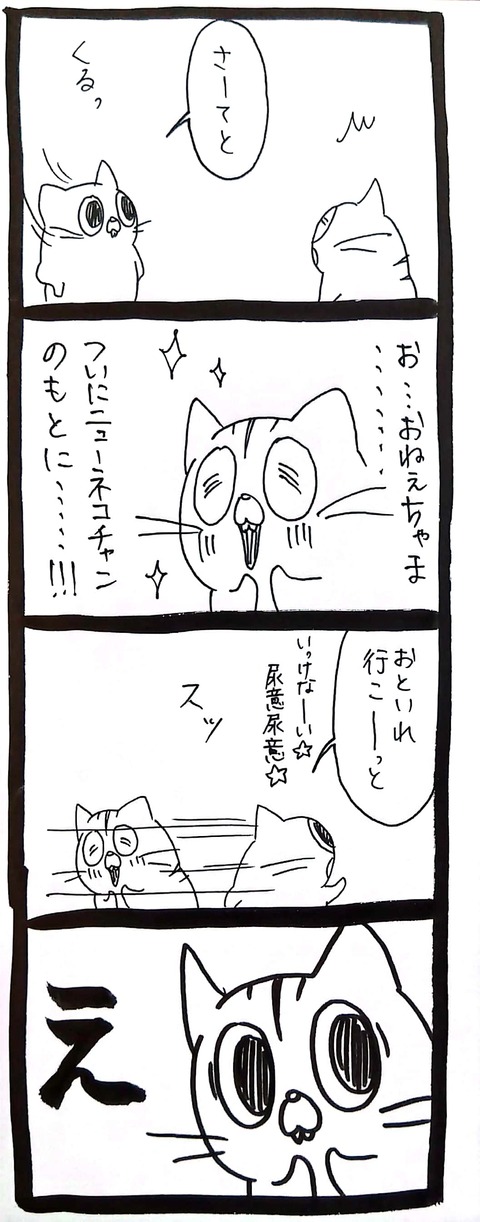 さーてと
くるっ
お…おねぇちゃま
………
ついにニューネコチャン
のもとに……!!!
おといれ
行こーーっと
いっけなーい☆
尿意尿意☆
スッ
え